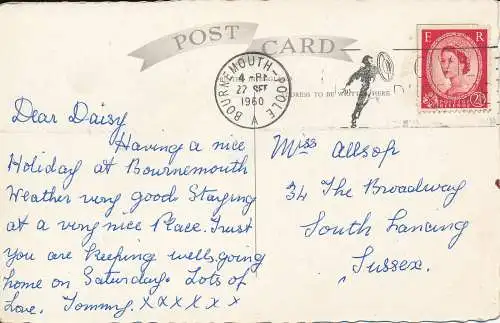 POST CARD
E R
2½
BOURNEMOUTH-POOLE
4 PM
22 SEP
1960
ADDRESS TO BE WRITTEN HERE
Dear Daisy
Having a nice
Holiday at Bournemouth
Weather very good. Staying
at a very nice Place. Trust
You are keeping well. going
home on Saturday. Lots of
Love. Tommy. X X X X X X
Miss Allsop
34 The Broadway
South Lancing
Sussex.